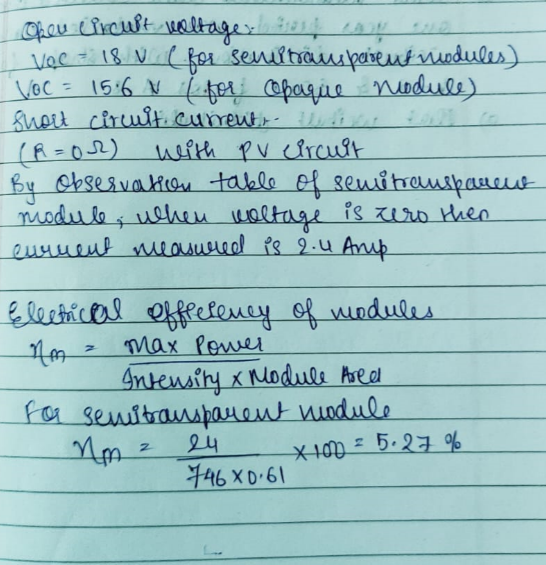 Open circuit voltage:-
Voc = 18 V (for semitransparent modules)
Voc = 15.6 V (for Opaque Module)
Short circuit current:-
(R = 0 Ω) with PV circuit
By Observation table of semitransparent
module, when voltage is zero then
current measured is 2.4 Amp
Electrical efficiency of modules
ηm = Max Power
Intensity x Module Area
For semitransparent module
ηm = 24 x 100 = 5.27 %
746 x 0.61